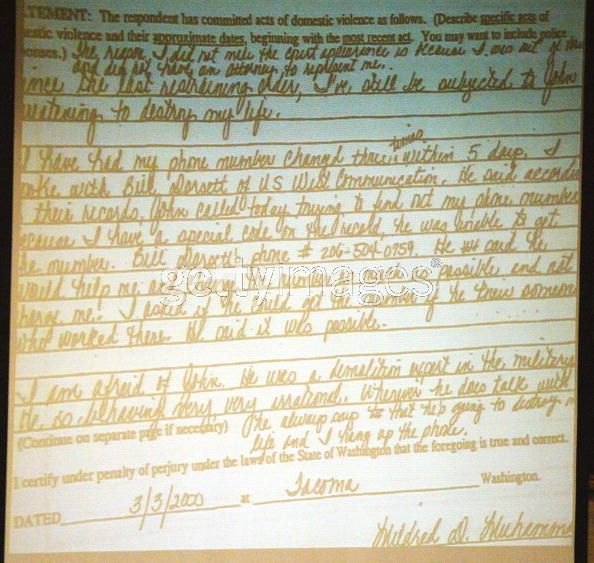 TEMENT: The respondent has committed acts of domestic violence as follows. (Describe specific acts of
estic violence and their approximate dates, beginning with the most recent act. You may want to include police
onses.) The reason I did not make the court appearance is because I was out of
and did not have an attorney to represent me.
ince the last restraining order, I've still be subjected to John
reatening to destroy my life.
times
I have had my phone number changed three within 5 days. I
oke with Bill Dorsett of US West Communication. He said accordi
their records, John called today trying to find out my phone number
ecause I have a special code on the record, he was unable to get
he number. Bill Dorsett's phone # 206-504-0759. He said he
would help me as many times as possible and not
harge me. I asked if he could get the number if he knew someone
who worked there. He said it was possible.
gettyimages®
I am afraid of John. He was a demolition expert in the military
He is behaving very, very irrational. Whenever he does talk with
(Continue on separate page if necessary) he always says that he's going to destroy m
life and I hang up the phone.
I certify under penalty of perjury under the laws of the State of Washington that the foregoing is true and correct.
DATED 3/3/2000 at Tacoma Washington.
Mildred D. Muhamm